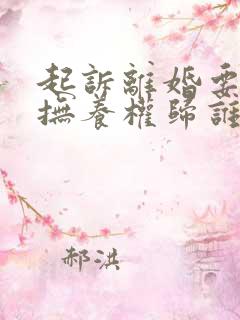 起訴離婚要
撫養權歸誰
郝洪